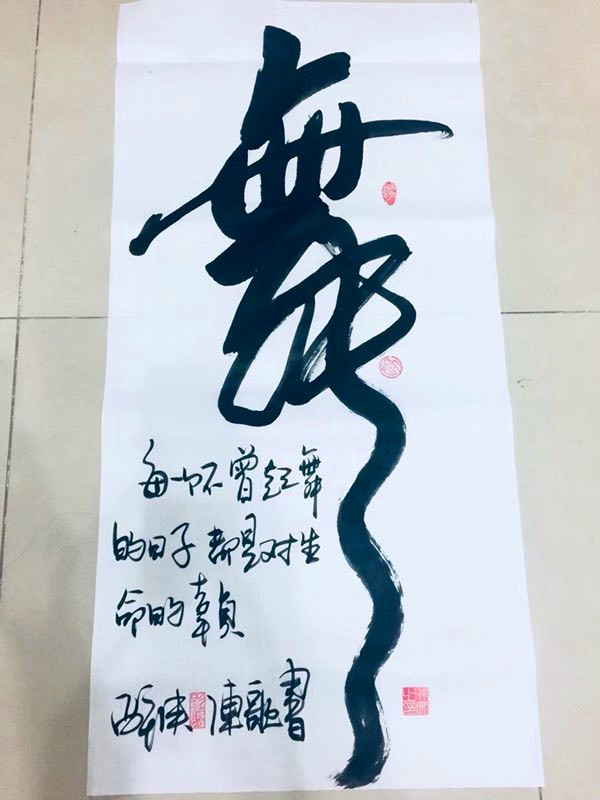 舞
每一个不曾起舞
的日子都是对生
命的辜负
陈歌书